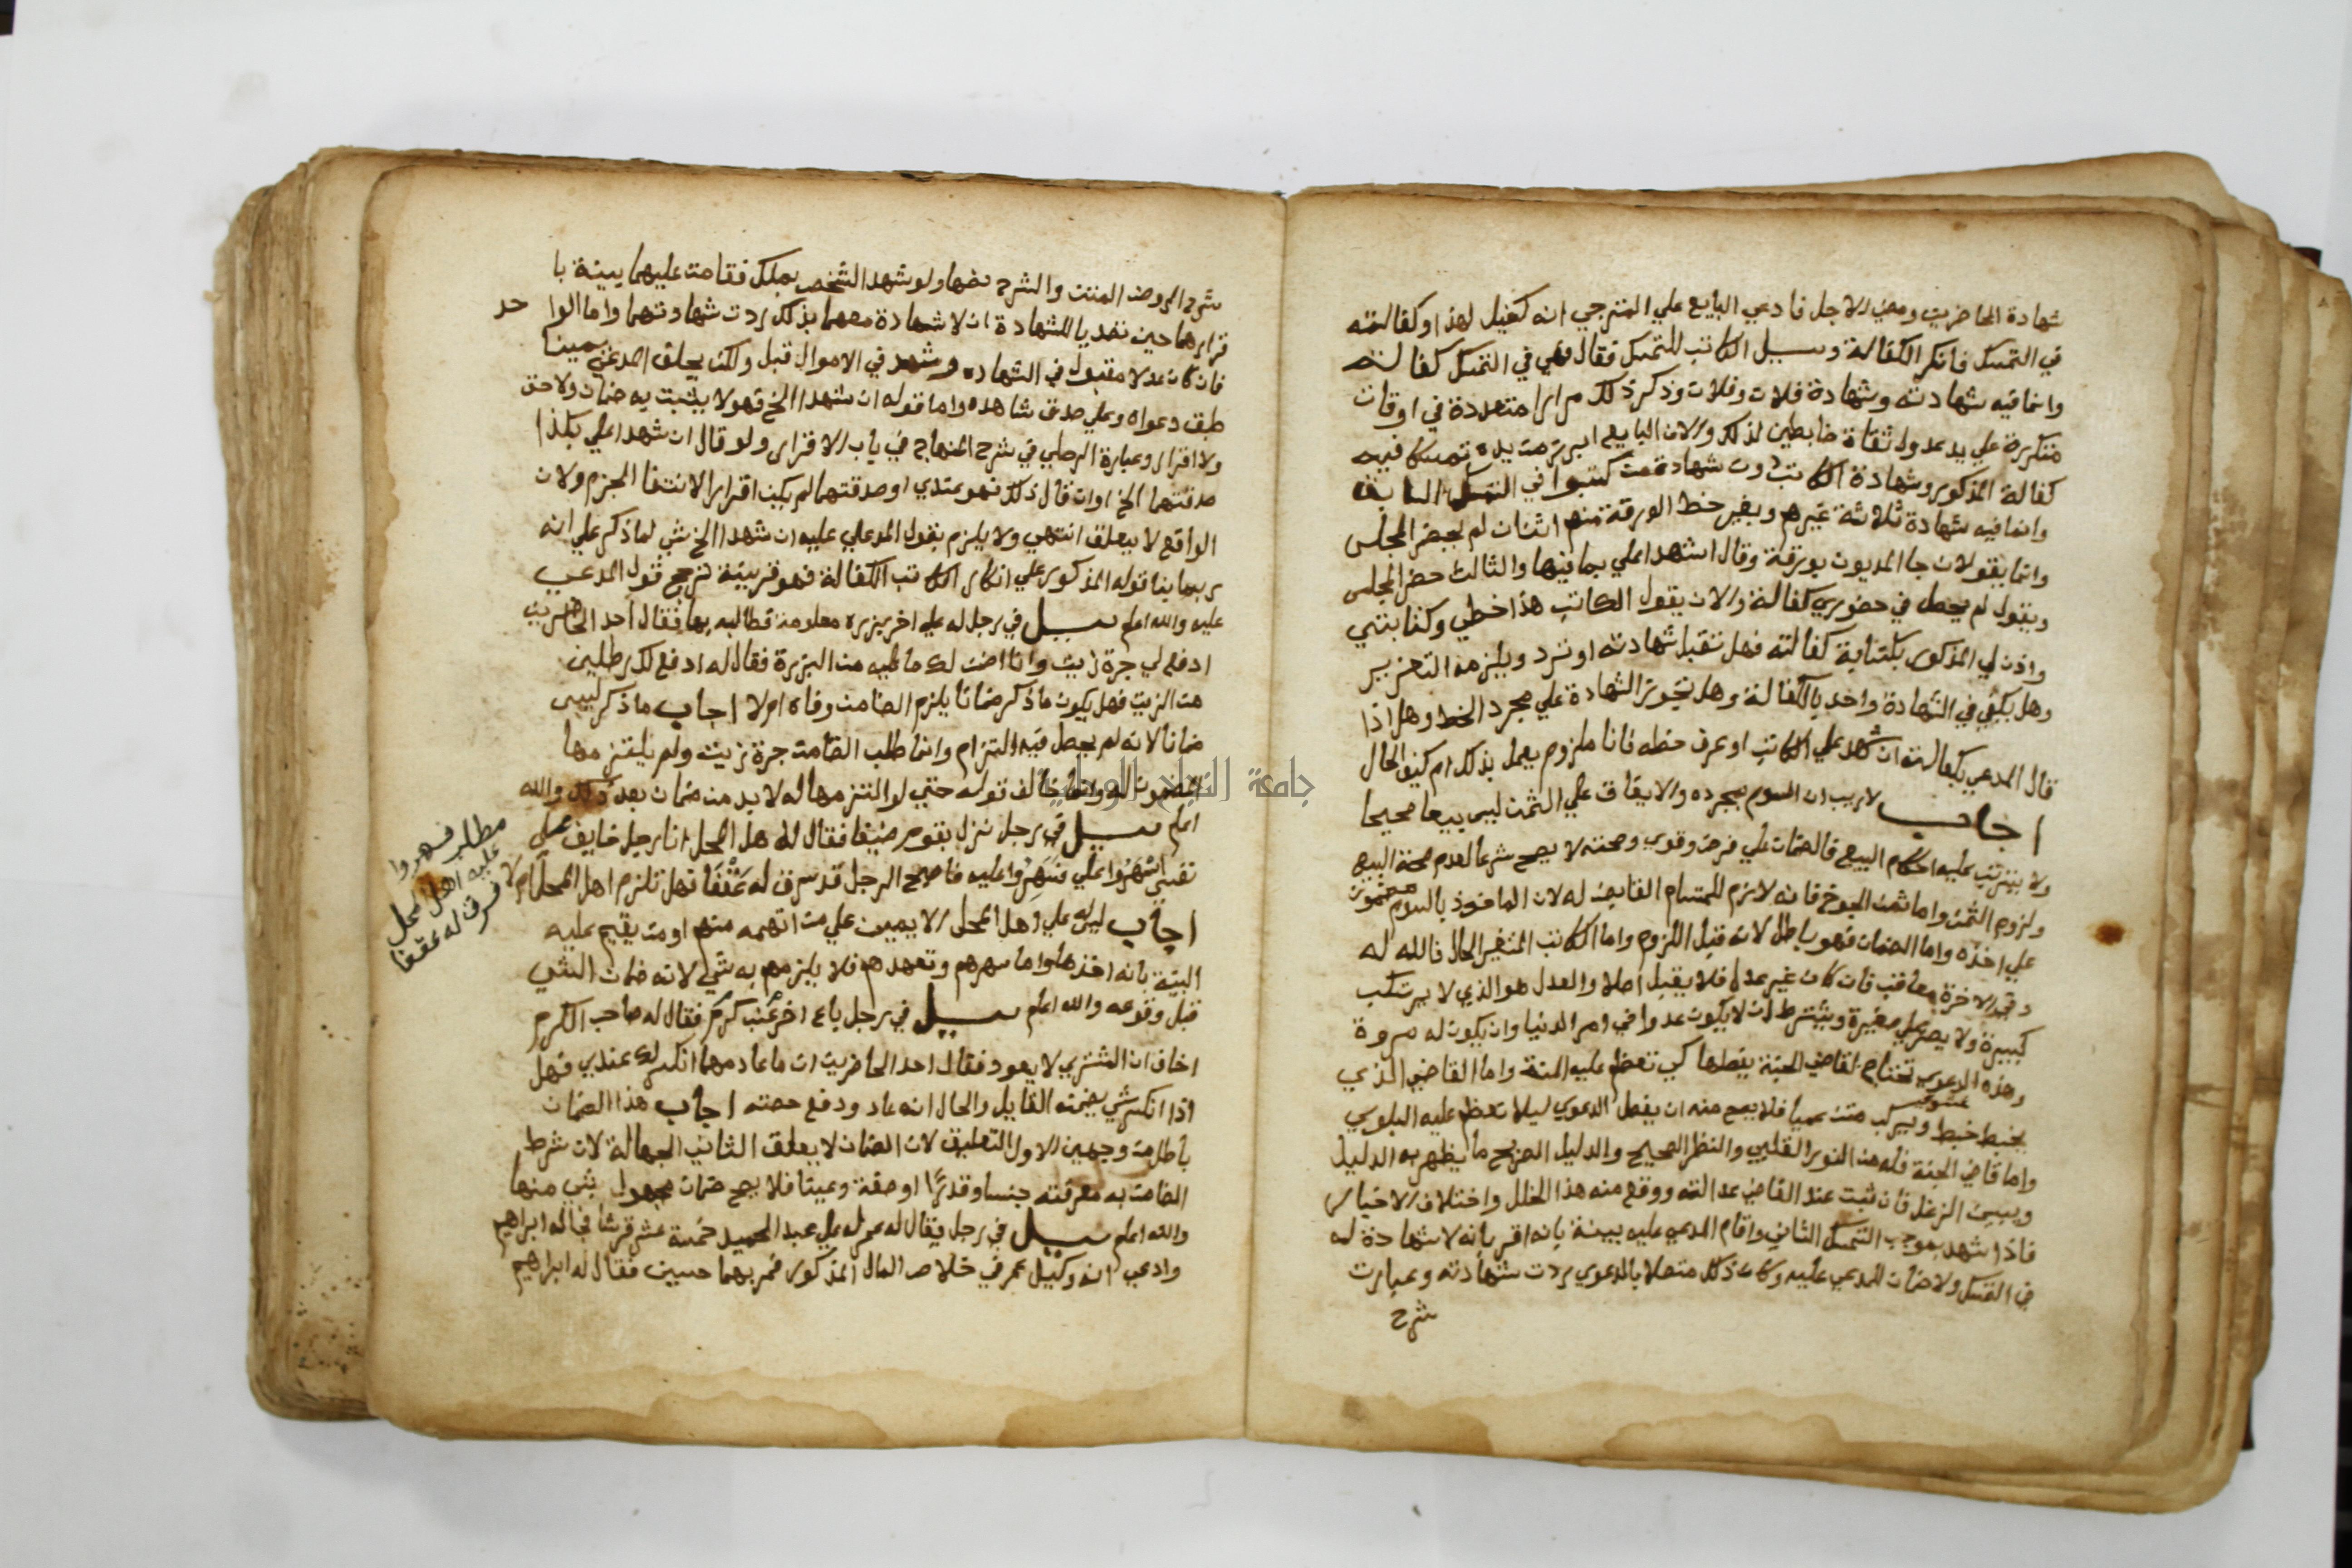 شهادة الحاضرين ومضي الاجل فادعي البايع علي المترجي انه كفيل لهذا وكفالته
في التمسك فانكر الكفالة وسيل الكاتب للتمسك فقال فهي في التمسك كفالته
وانما فيه شهادته وشهادة فلان وفلان وذكر ذلك مرارا متعددة في اوقات
متكررة علي يد عدول ثقاة ضابطين لذلك والان البايع ابرز من يده تمسكا فيه
كفالة المذكور وشهادة الكاتب دون شهادة من كتبوا في التمسك السابق
وانما فيه شهادة ثلاثة غيرهم وبغير خط الورقة منهم اثنان لم يحضر المجلس
وانما يقولان جا المديون بورقة وقال اشهدا علي بما فيها والثالث حضر المجلس
ويقول لم يحصل في حضوري كفالة والان يقول الكاتب هذا خطي وكتابتي
واذن لي المذكور بكتابة كفالته فهل تقبل شهادته او ترد ويلزمه التعزير
وهل يكفي في الشهادة واحد بالكفالة وهل تجوز الشهادة علي مجرد الخط وهل اذا
قال المدعي بكفالته ان شهد علي الكاتب او عرف خطه فانا ملزوم يعمل بذلك ام كيف الحال
اجاب لا ريب ان السوم بمجرده والايقاف علي الثمن ليس بيعا صحيحا
ولا يترتب عليه احكام البيع فالضمان علي فرض وقوعه وصحته لا يصح شرعا لعدم صحة البيع
ولزوم الثمن واما ثمن الجوخ فانه لازم للمتسام القابض له لان الماخوذ بالسوم مضمون
علي اخذه واما الضمان فهو باطل لانه قبل اللزوم واما الكاتب المتغير الحال فالله له
وفي الاخرة معاقب فان كان غير عدل فلا يقبل اصلا والعدل هو الذي لا يرتكب
كبيرة ولا يصر علي صغيرة ويشترط ان لا يكون عدوا في امر الدنيا وان يكون له مروة
وهذه الدعوي تحتاج لقاضي الجنة يفصلها كي تعظم عليه المنة واما القاضي الذي
يخبط خبط عشوي ويركب متن عميا فلا يصح منه ان يفصل الدعوي ليلا تعظم عليه البلوي
واما قاضي الجنة فله من النور القلبي والنظر الصحيح والدليل الصريح ما يظهر به الدليل
ويبين الزغل فان ثبت عند القاضي عدالته ووقع منه هذا الخلل واختلاف الاخبار
فاذا شهد بموجب التمسك الثاني واقام المدعي عليه بينة بانه اقر بانه لا شهادة له
في التمسك ولا ضمان للمدعي عليه وكان ذلك متصلا بالدعوي ردت شهادته وعبارت
شرح
شرح الروض المتن والشرح نصها ولو شهد الشخص بملك فقامت عليهما بينة با
قرارهما حين تصديا للشهادة ان لا شهادة معهما بذلك ردت شهادتهما واما الواحد
فان كان عدلا مقبول في الشهاده وشهد في الاموال قبل ولكن يحلف المدعي يمينا
طبق دعواه وعلي صدق شاهده واما قوله ان شهدا الخ فهو لا يثبت به ضمان ولا حق
ولا اقرار وعبارة الرملي في شرح المنهاج في باب الاقرار ولو قال ان شهدا علي بكذا
صدقتهما الخ او ان قال ذلك فهو عندي او صدقتهما لم يكن اقرارا لانتفا الجزم ولان
الواقع لا يعلق انتهي ولا يلزم بقول المدعي عليه ان شهدا الخ شي لما ذكر علي انه
ربما بنا قوله المذكور علي انكار الكاتب الكفالة فهو قرينة ترجح قول المدعي
عليه والله اعلم سيل في رجل له علي اخر بزيره معلومة فطالبه بها فقال احد الحاضرين
ادفع لي جرة زيت وانا اضمن لك ما عليه من البزيرة فقال له ادفع لك رطلين
من الزيت فهل يكون ما ذكر ضمانا يلزم الضامن وفاه ام لا اجاب ما ذكر ليس
ضمانا لانه لم يحصل فيه التزام وانما طلب الضامن جرة زيت ولم يلتزمها
المضمون له وانما خالف قوله حتي لو التزمها له لا بد من ضمان بعد ذلك والله
اعلم سيل في رجل نزل بقوم ضيفا فقال له هل المحل انا رجل خايف علي
نفسي اسهروا علي فسهروا عليه فاصبح الرجل قد سرق له عقفا فهل تلزم اهل المحل ام لا
اجاب ليس له علي اهل المحل الا يمين علي من اتهمه منهم او من يقيم عليه
البينة بانه اخذها واما سهرهم وتعهدهم فلا يلزمهم به شي لانه ضمان الشي
قبل وقوعه والله اعلم سيل في رجل باع اخر عنب كرم فقال له صاحب الكرم
اخاف ان المشتري لا يعود فقال احد الحاضرين ان ما عاد مهما انكسر لك عندي فهل
اذا انكسر شي يضمنه القايل والحال انه عاد ودفع حصته اجاب هذا الضمان
باطل من وجهين الاول التعليق لان الضمان لا يعلق الثاني الجهالة لان شرط
الضامن به معرفته جنسا وقدرا او صفة وعينا فلا يصح ضمان مجهول بشي منها
والله اعلم سيل في رجل يقال له عمر له علي عبد الحميد خمسة عشر قرشا فجا له ابراهيم
وادعي انه وكيل عمر في خلاص المال المذكور فمر بهما حسين فقال له ابراهيم
مطلب سهروا
عليه اهل محل
فسرق له عقفا
جامعة النجاح الوطنية